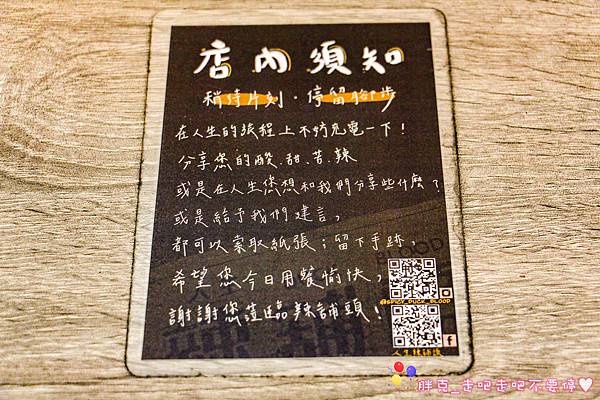 店內須知
稍待片刻．停留腳步
在人生的旅程上不妨充電一下！
分享您的酸.甜.苦.辣
或是在人生您想和我們分享些什麼？
或是給予我們建言，
都可以索取紙張；留下手跡，
希望您今日用餐愉快，
謝謝您蒞臨辣鋪頭！
@SPICY_DUCK_BLOOD
人生辣鋪頭
胖克_走吧走吧不要停♥